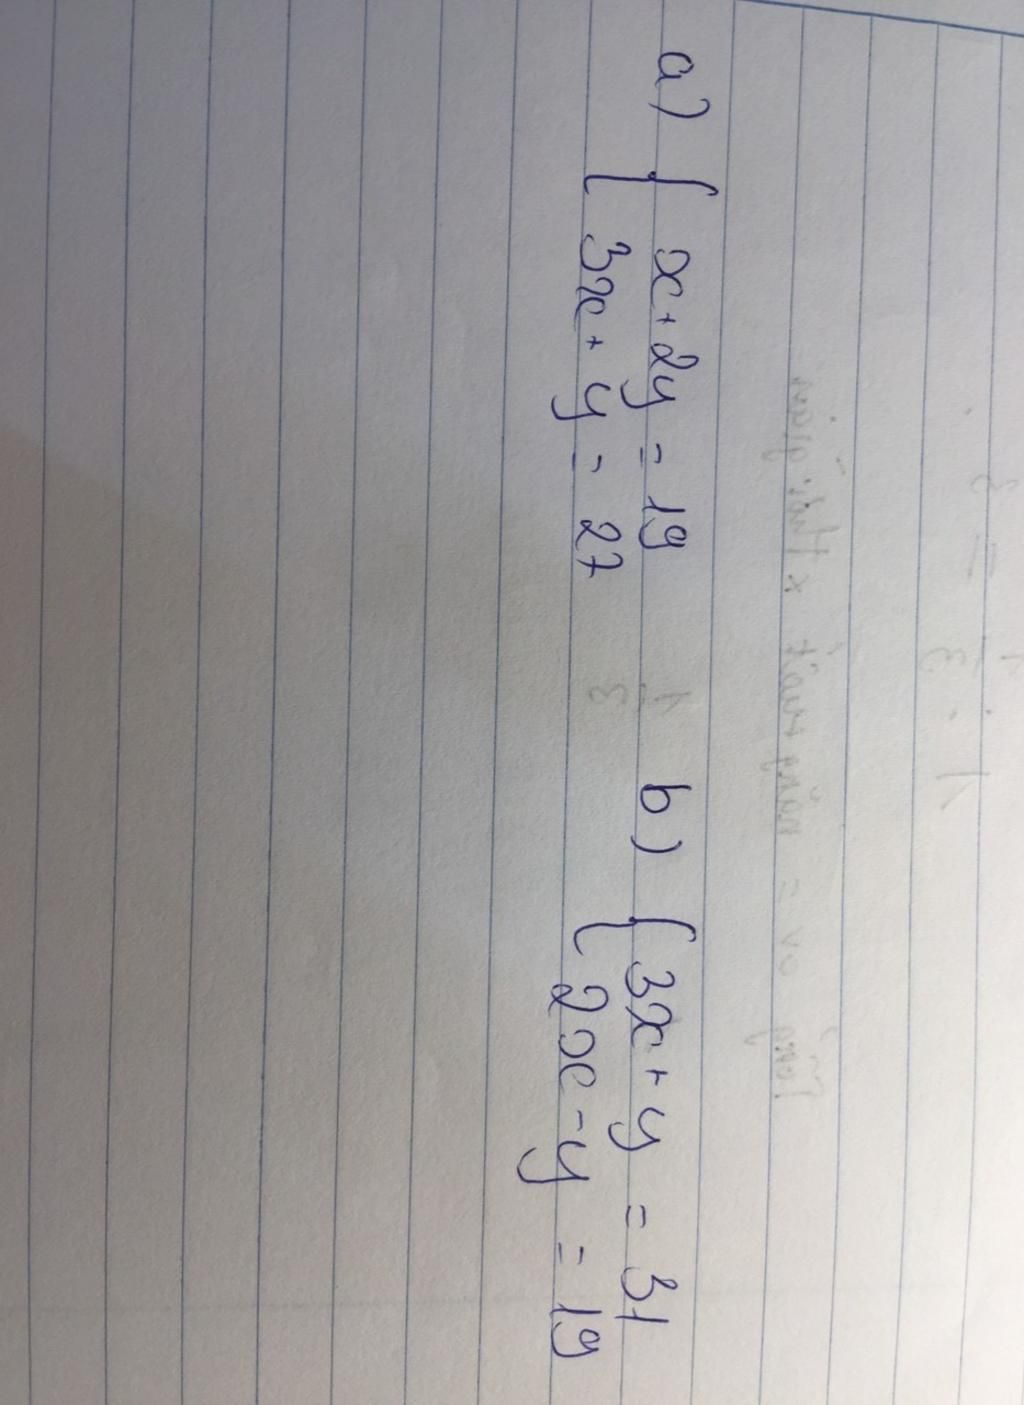 a) { x + 2y = 19
3x + y = 27
b) { 3x + y = 31
2x - y = 19